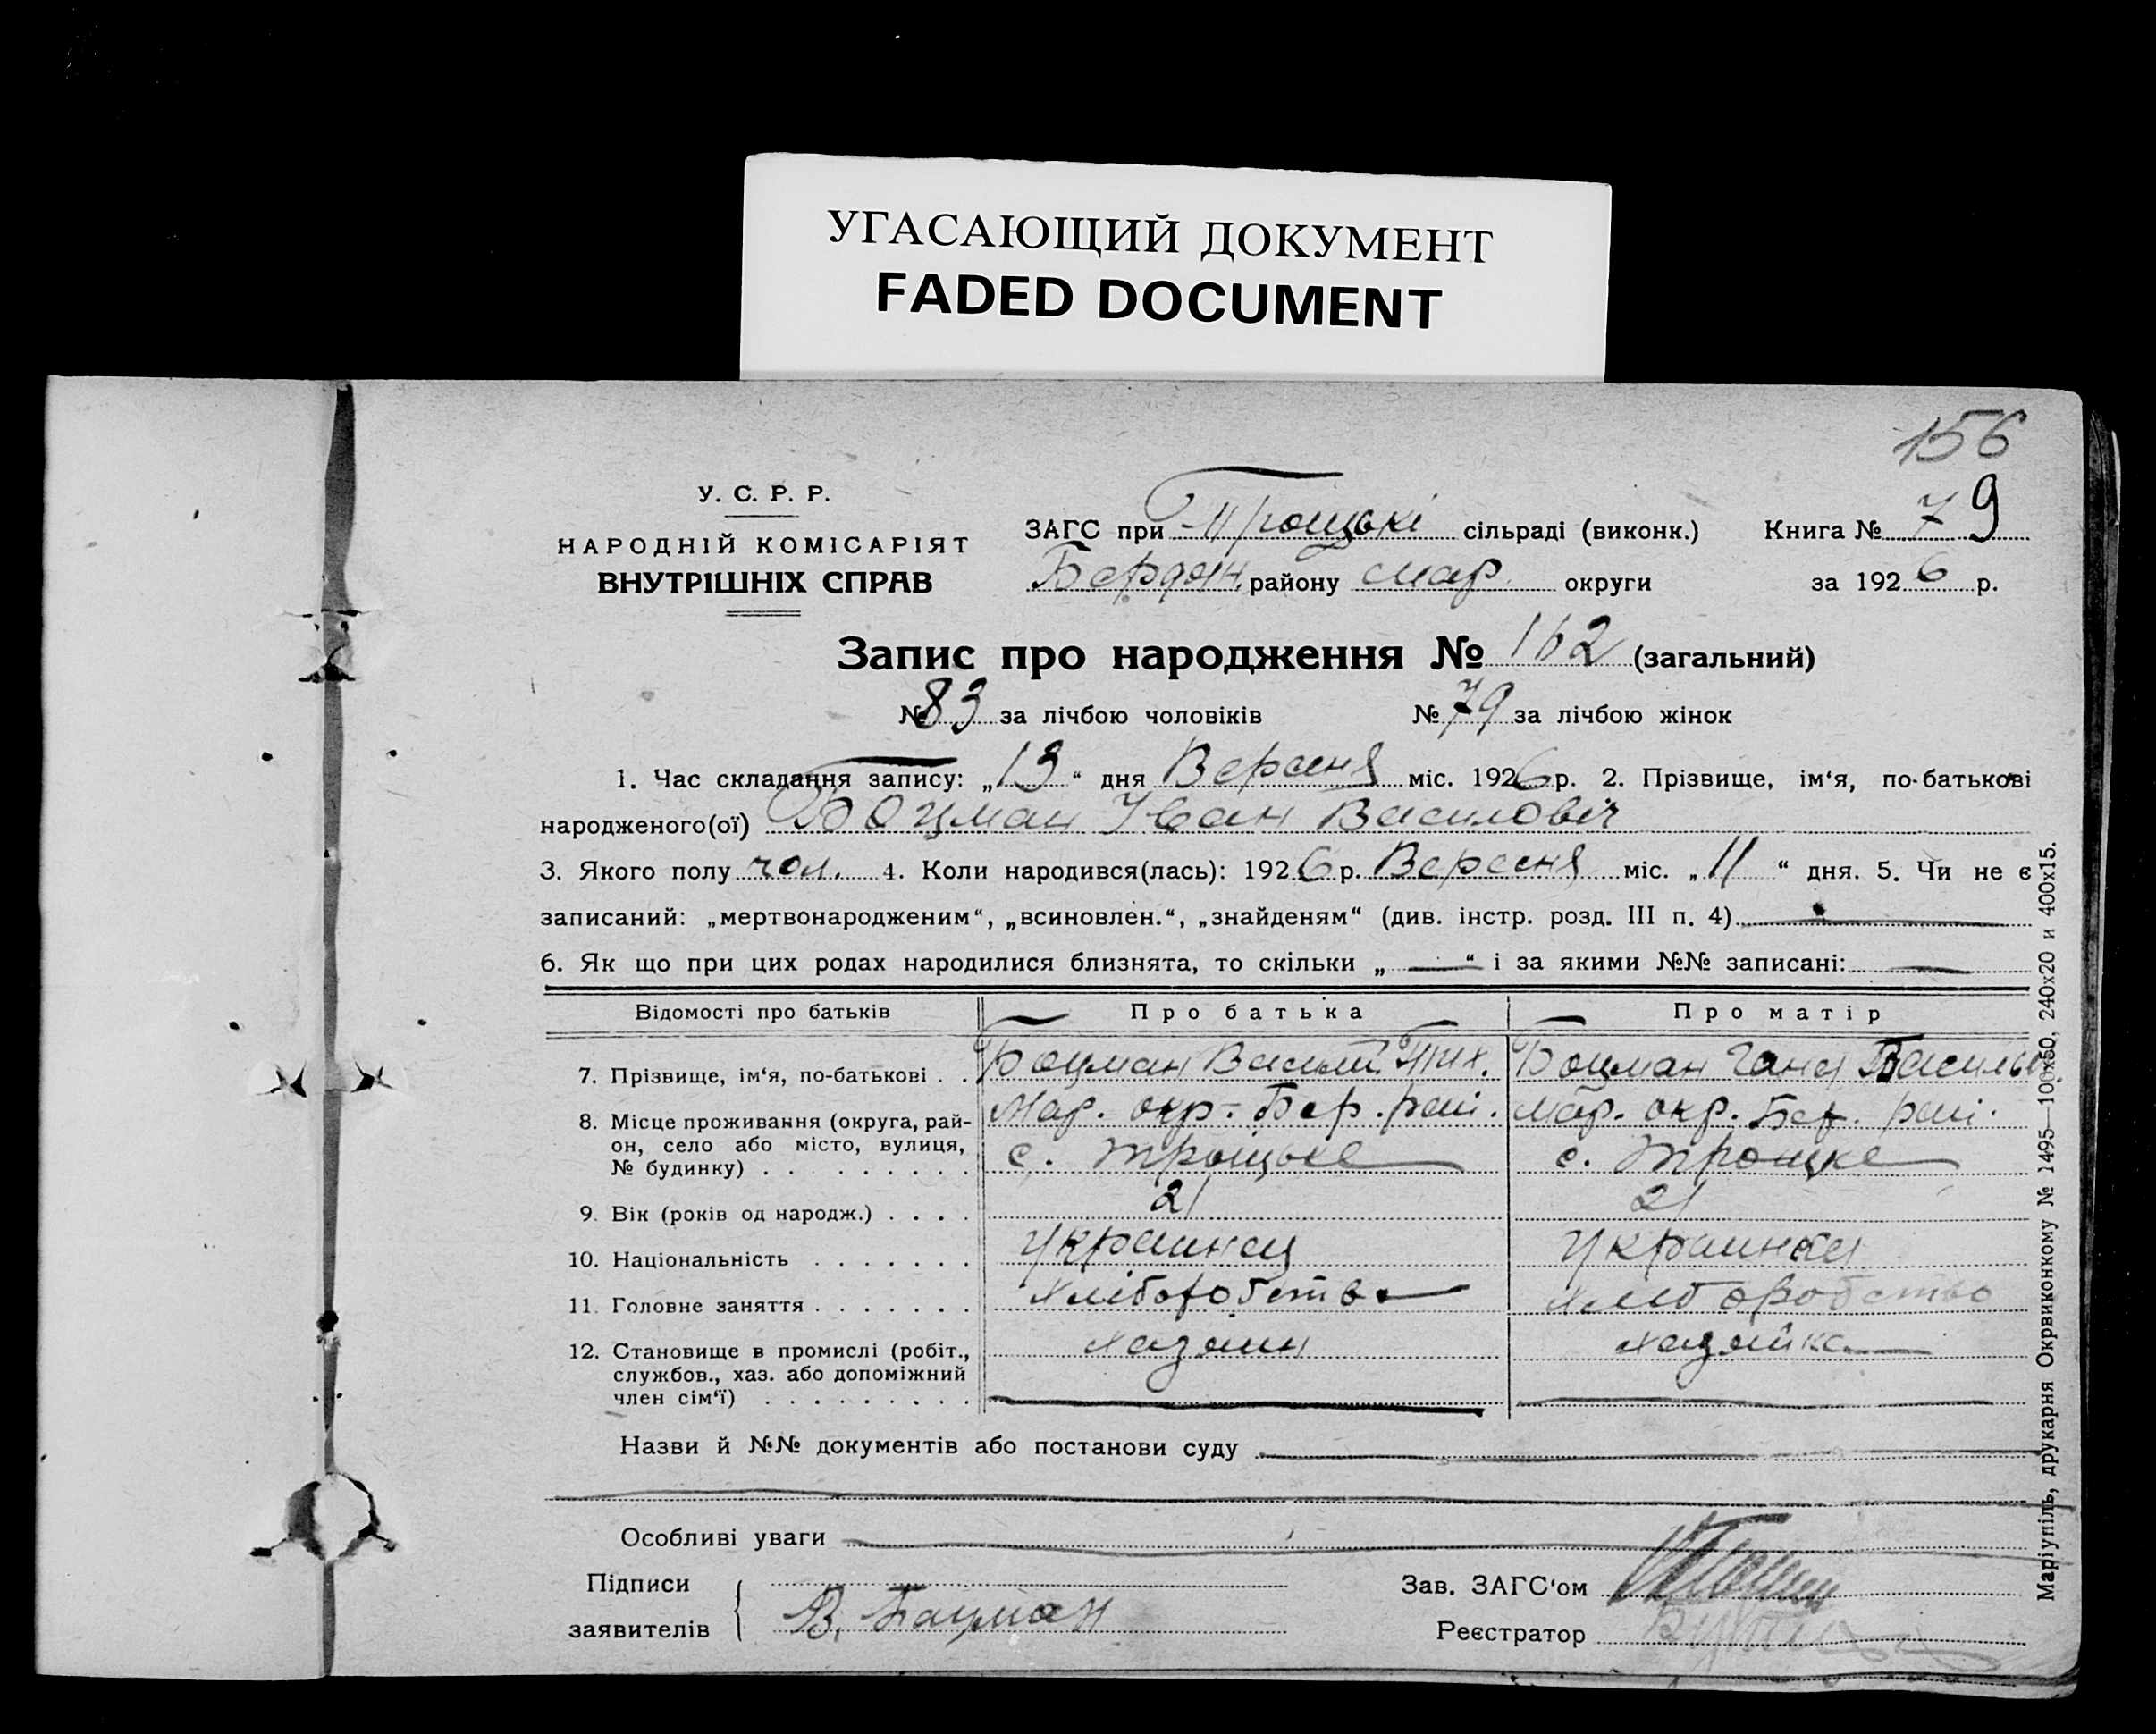 УГАСАЮЩИЙ ДОКУМЕНТ
FADED DOCUMENT
156
У. С. Р. Р.
НАРОДНІЙ КОМІСАРІЯТ
ВНУТРІШНІХ СПРАВ
ЗАГС при Троцькі сільраді (виконк.) Книга № 79
Бердян. району Мар. округи за 1926 р.
Запис про народження № 162 (загальний)
№ 83 за лічбою чоловіків № 79 за лічбою жінок
1. Час складання запису: „13“ дня Вересня міс. 1926 р. 2. Прізвище, ім‘я, по-батькові
народженого(ої) Боцман Іван Василовіч
3. Якого полу чол. 4. Коли народився(лась): 1926 р. Вересня міс. „11“ дня. 5. Чи не є
записаний: „мертвонародженим“, „всиновлен.“, „знайденям“ (див. інстр. розд. III п. 4)
6. Як що при цих родах народилися близнята, то скільки „—“ і за якими №№ записані: —
Відомості про батьків Про батька Про матір
7. Прізвище, ім‘я, по-батькові . . Боцман Василь Тих. Боцман Гана Василь.
8. Місце проживання (округа, рай- Мар. окр. Бер. рай. Мар. окр. Бер. рай.
он, село або місто, вулиця, с. Троцьке с. Троцке
№ будинку) . . . . . . . . .
9. Вік (років од народж.) . . . . 21 21
10. Національність . . . . . . . Украинец Украинка
11. Головне заняття . . . . . . . Хліборобство Хлеборобство
12. Становище в промислі (робіт., Хазяин Хазяйка
службов., хаз. або допоміжний
член сім‘ї) . . . . . . . . .
Назви й №№ документів або постанови суду
Особливі уваги
Підписи
заявителів В. Бацман
Зав. ЗАГС‘ом
Реєстратор
Маріупіль, друкарня Окрвиконкому № 1495—100х50, 240х20 и 400х15.